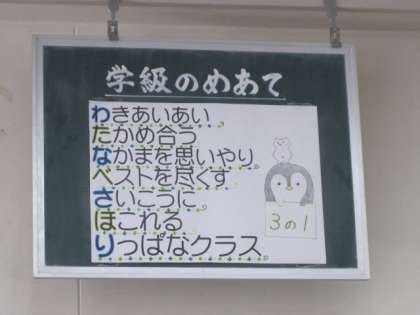 学級のめあて
わきあいあい
たかめ合う
なかまを思いやり
ベストを尽くす
さいこうに
ほこれる
りっぱなクラス
3の1